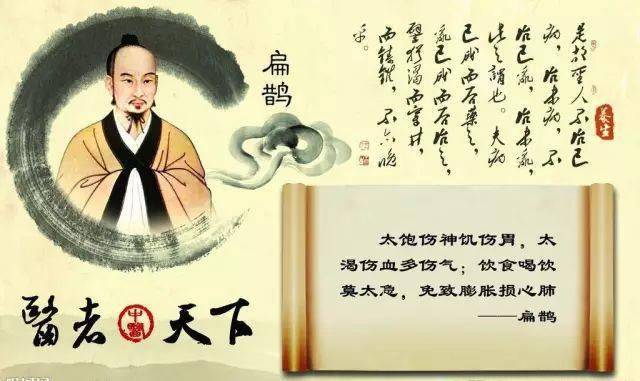 扁鹊
是故聖人不治已
病，治未病，不
治已亂，治未亂，
此之謂也。夫病
已成而后藥之，
亂已成而后治之，
譬猶渴而穿井，
而鑄錐，不亦晚
乎。
養生
太饱伤神饥伤胃，太
渴伤血多伤气；饮食喝饮
莫太急，免致膨胀损心肺
——扁鹊
醫者中醫天下